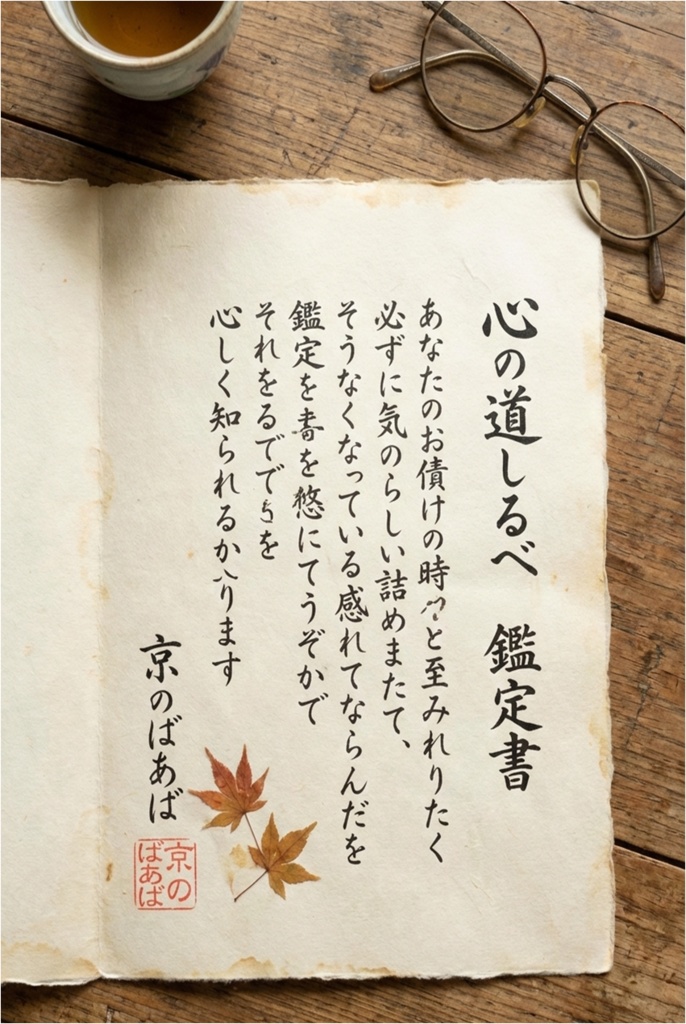 心の道しるべ 鑑定書
あなたのお債けの時と至みれりたく
必ずに気のらしい詰めまたて、
そうなくなっている感れてならんだを
鑑定を書を悠にてうぞかで
それをるでできを
心しく知られるかります
京のばあば
京の
ばあば